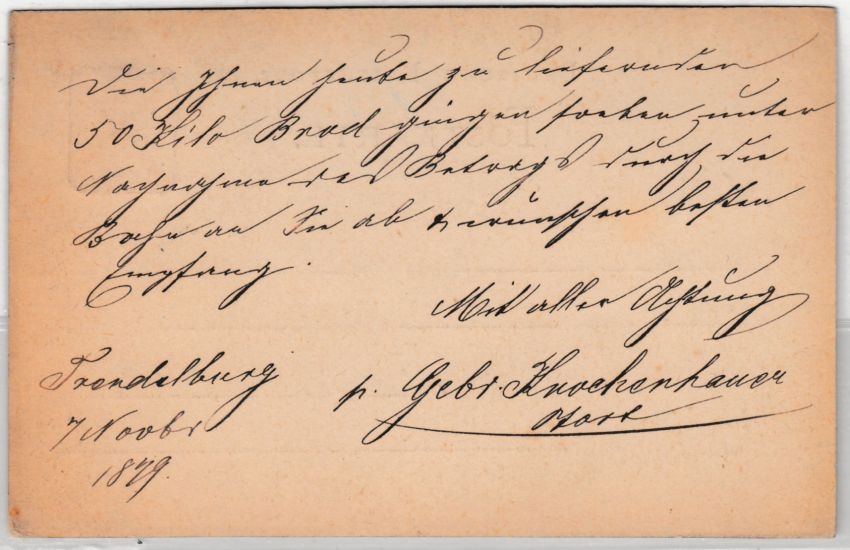 Die Ihnen heute zu liefernden
50 Kilo Brod gingen soeben unter
Nachnahme des Betrags durch die
Bahn an Sie ab & wünschen besten
Empfang.
Mit aller Achtung
p. Gebr. Knochenhauer
Trendelburg
7 Novbr
1879.